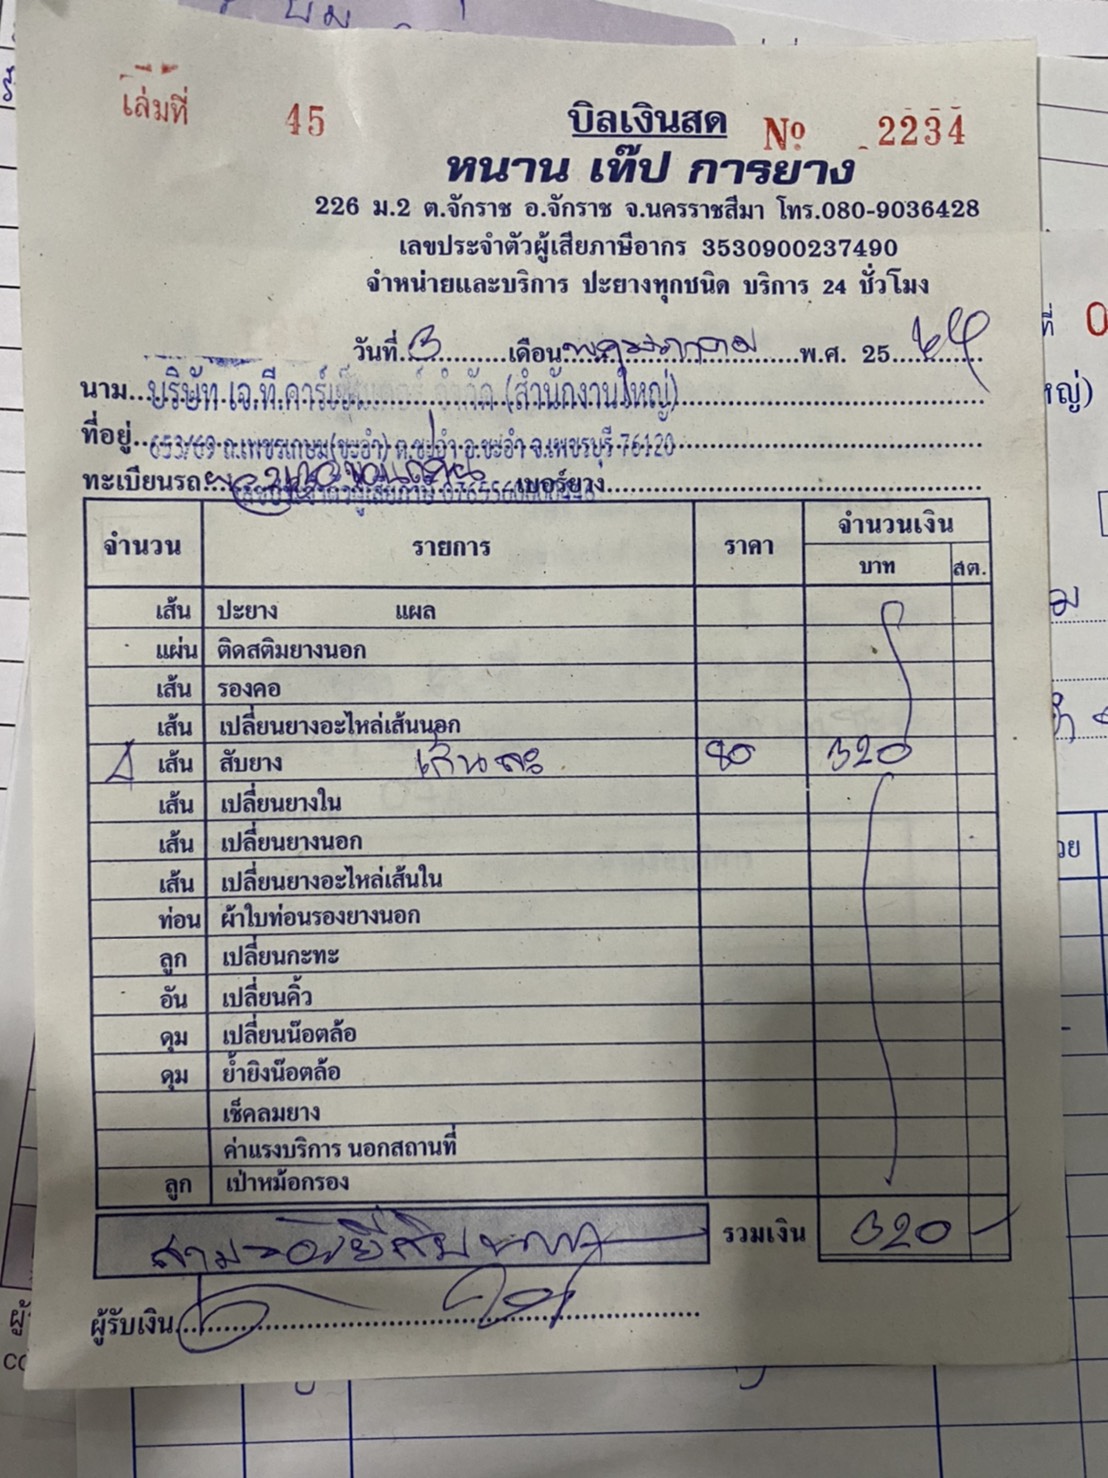 เล่มที่ 45 บิลเงินสด No 2234
หนาน เท๊ป การยาง
226 ม.2 ต.จักราช อ.จักราช จ.นครราชสีมา โทร.080-9036428
เลขประจำตัวผู้เสียภาษีอากร 3530900237490
จำหน่ายและบริการ ปะยางทุกชนิด บริการ 24 ชั่วโมง
วันที่ 3 เดือน พฤษภาคม พ.ศ. 25
นาม บริษัท เจ.ที.คาร์เซ็นเตอร์ จำกัด (สำนักงานใหญ่)
ที่อยู่ 653/69 ถ.เพชรเกษม(ชะอำ) ต.ชะอำ อ.ชะอำ จ.เพชรบุรี 76120
ทะเบียนรถ ขอนแก่น เบอร์ยาง
เลขประจำตัวผู้เสียภาษี
จำนวน รายการ ราคา จำนวนเงิน
บาท สต.
เส้น ปะยาง แผล
แผ่น ติดสติมยางนอก
เส้น รองคอ
เส้น เปลี่ยนยางอะไหล่เส้นนอก
4 เส้น สับยาง เส้นละ 80 320
เส้น เปลี่ยนยางใน
เส้น เปลี่ยนยางนอก
เส้น เปลี่ยนยางอะไหล่เส้นใน
ท่อน ผ้าใบท่อนรองยางนอก
ลูก เปลี่ยนกะทะ
อัน เปลี่ยนคิ้ว
ดุม เปลี่ยนน๊อตล้อ
ดุม ย้ำยิงน๊อตล้อ
เช็คลมยาง
ค่าแรงบริการ นอกสถานที่
ลูก เป่าหม้อกรอง
สามร้อยยี่สิบบาท รวมเงิน 320
ผู้รับเงิน